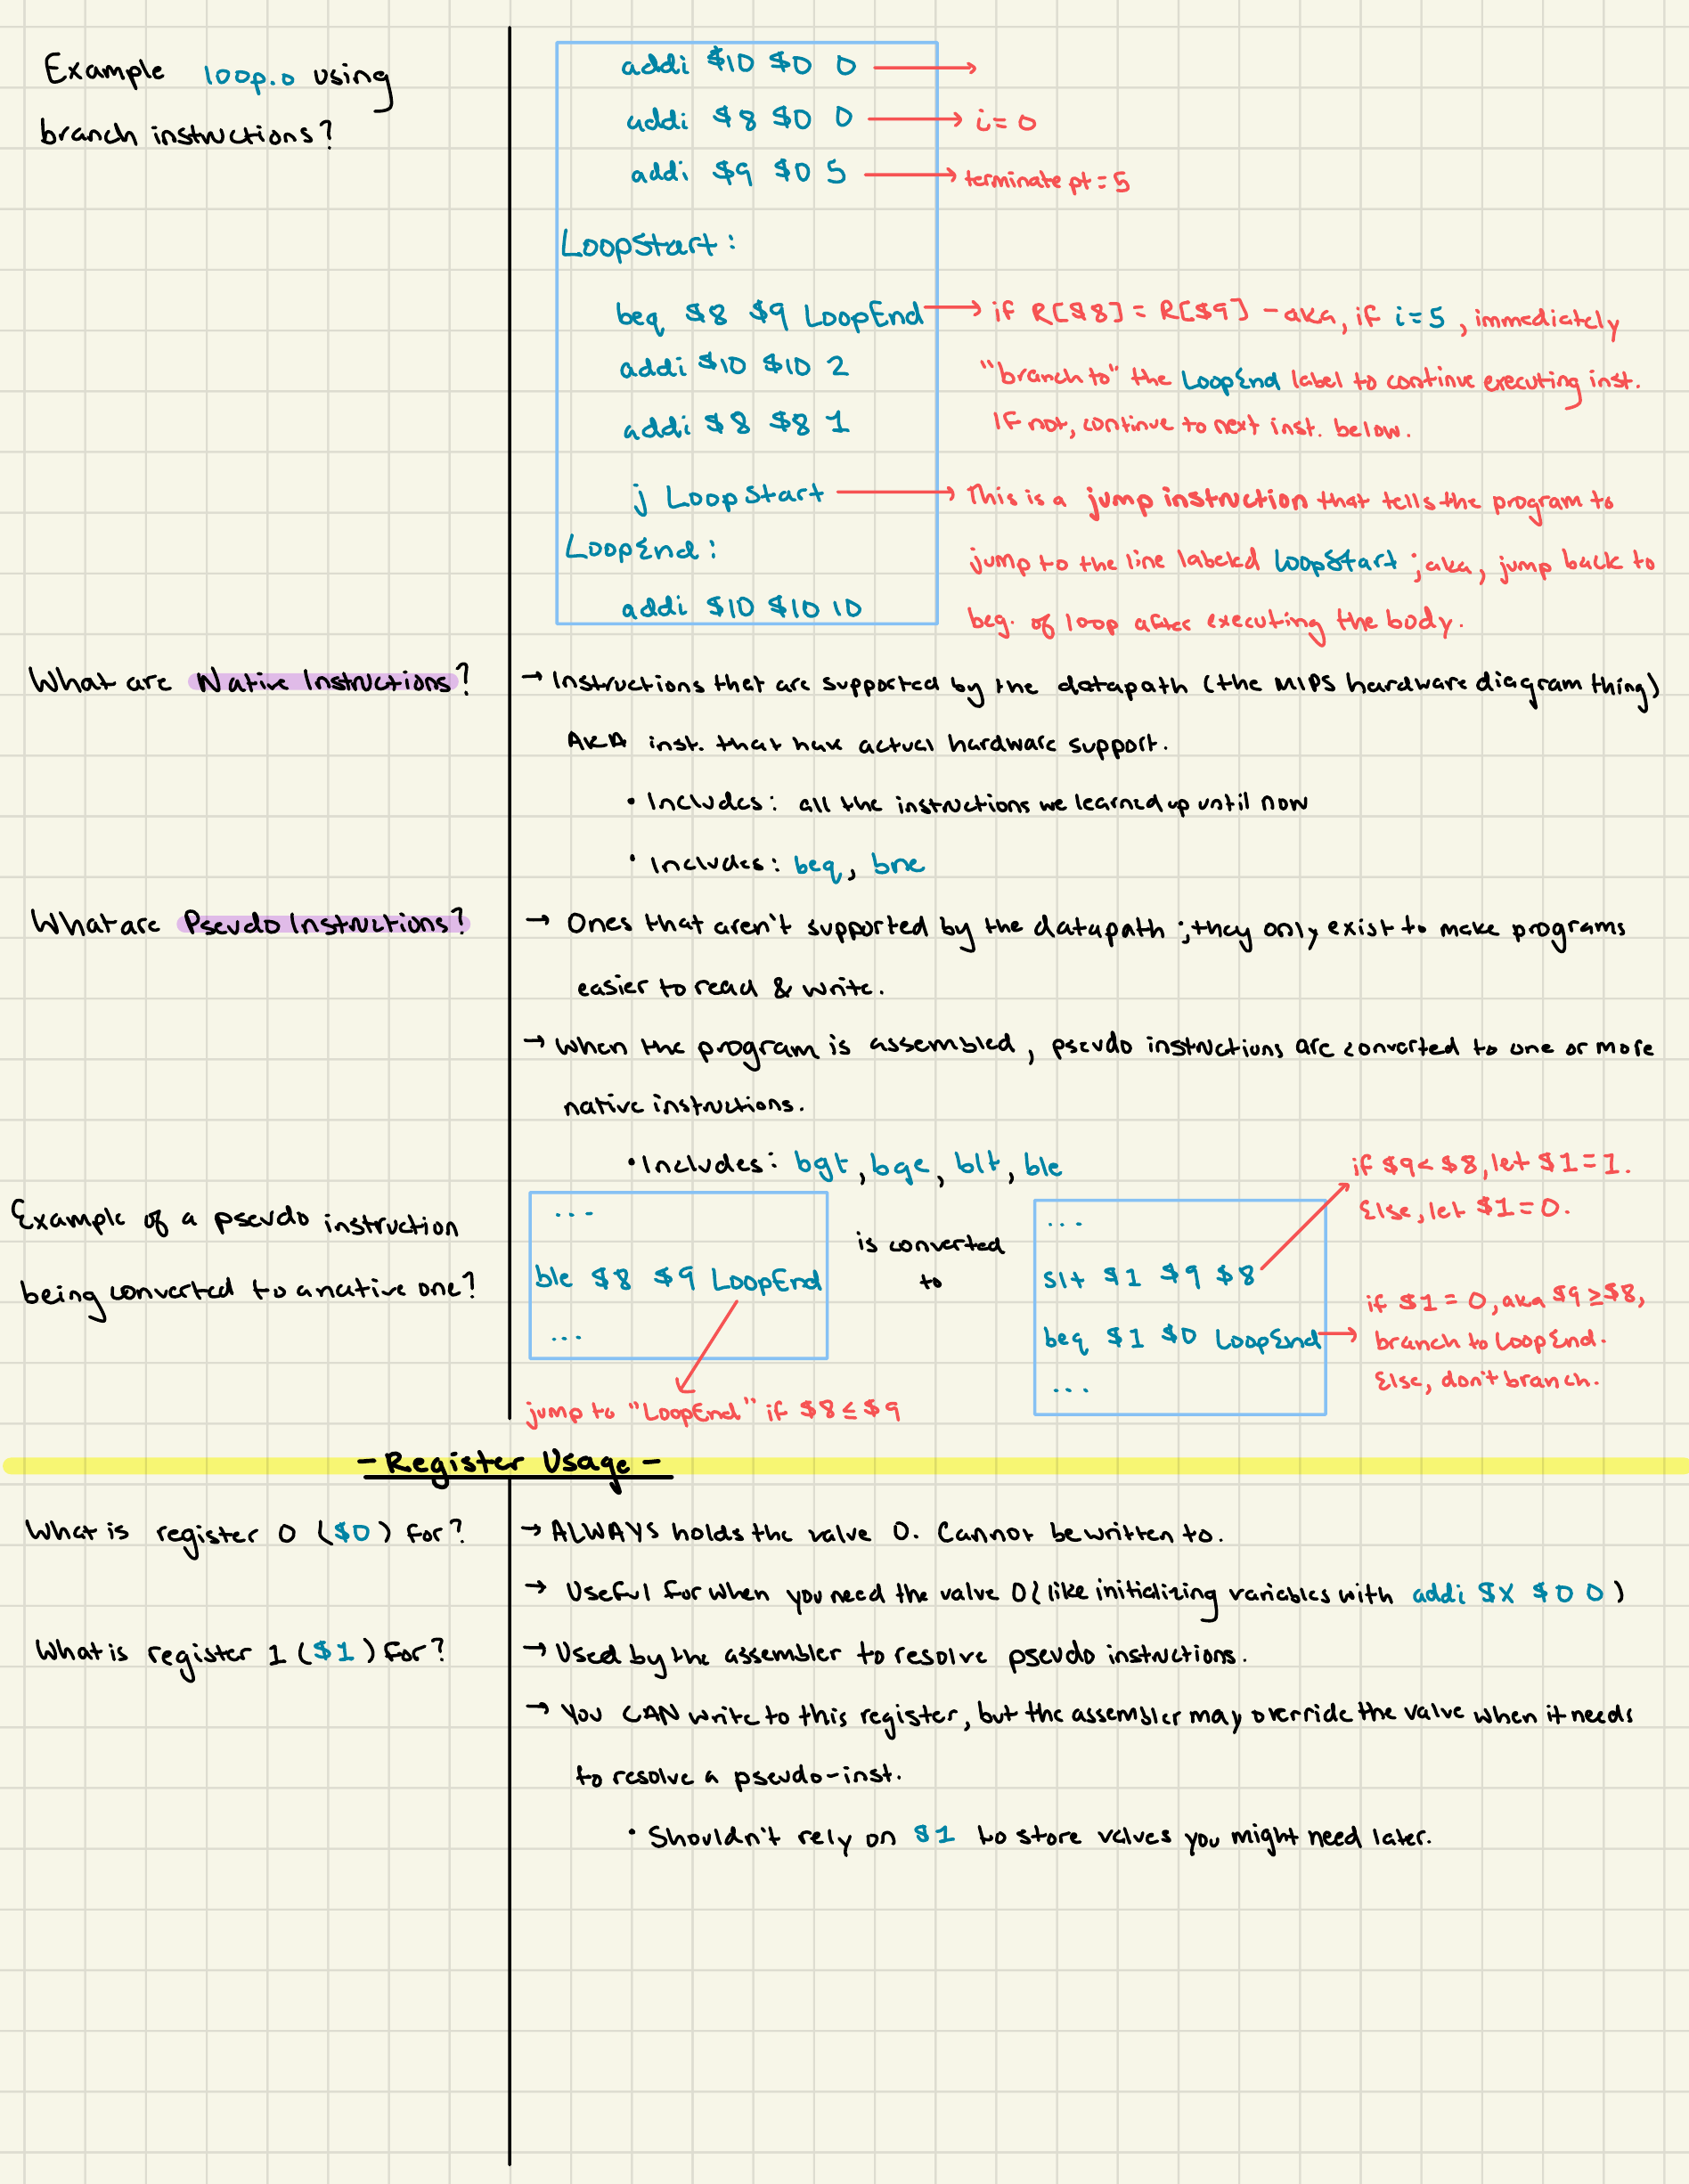 Example loop.o using
branch instructions?
addi $10 $0 0 →
addi $8 $0 0 → i=0
addi $9 $0 5 → terminate pt=5
LoopStart:
beq $8 $9 LoopEnd → if R[$8] = R[$9] - aka, if i=5, immediately
"branch to" the LoopEnd label to continue executing inst.
IF not, continue to next inst. below.
addi $10 $10 2
addi $8 $8 1
j LoopStart → This is a jump instruction that tells the program to
jump to the line labeled LoopStart; aka, jump back to
beg. of loop after executing the body.
LoopEnd:
addi $10 $10 10
What are Native Instructions?
→ Instructions that are supported by the datapath (the MIPS hardware diagram thing)
AKA inst. that have actual hardware support.
• Includes: all the instructions we learned up until now
• Includes: beq, bne
What are Pseudo Instructions?
→ Ones that aren't supported by the datapath; they only exist to make programs
easier to read & write.
→ When the program is assembled, pseudo instructions are converted to one or more
native instructions.
• Includes: bgt, bge, blt, ble
Example of a pseudo instruction
being converted to a native one?
...
ble $8 $9 LoopEnd
...
jump to "LoopEnd" if $8 ≤ $9
is converted
to
...
slt $1 $9 $8
beq $1 $0 LoopEnd
...
if $9 < $8, let $1 = 1.
Else, let $1 = 0.
if $1 = 0, aka $9 ≥ $8,
branch to LoopEnd.
Else, don't branch.
- Register Usage -
What is register 0 ($0) for?
→ ALWAYS holds the value 0. Cannot be written to.
→ Useful for when you need the value 0 (like initializing variables with addi $X $0 0)
What is register 1 ($1) for?
→ Used by the assembler to resolve pseudo instructions.
→ You CAN write to this register, but the assembler may override the value when it needs
to resolve a pseudo-inst.
• Shouldn't rely on $1 to store values you might need later.